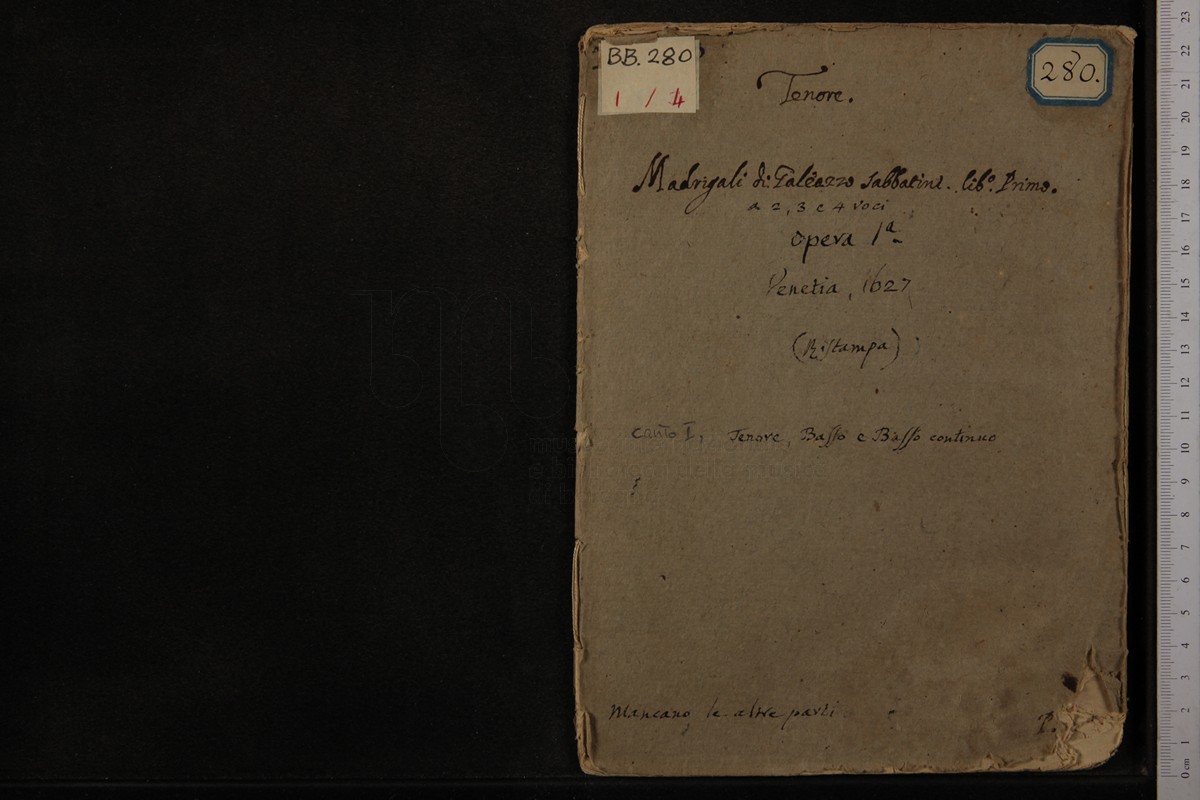 BB. 280
1 / 4
280.
Tenore.
Madrigali di Galeazzo Sabbatini. libº. Primo.
a 2, 3 e 4 voci
opera 1ª
Venetia, 1627
(Ristampa)
Canto I, Tenore, Basso e Basso continuo
Mancano le altre parti
P.
0 cm 1 2 3 4 5 6 7 8 9 10 11 12 13 14 15 16 17 18 19 20 21 22 23